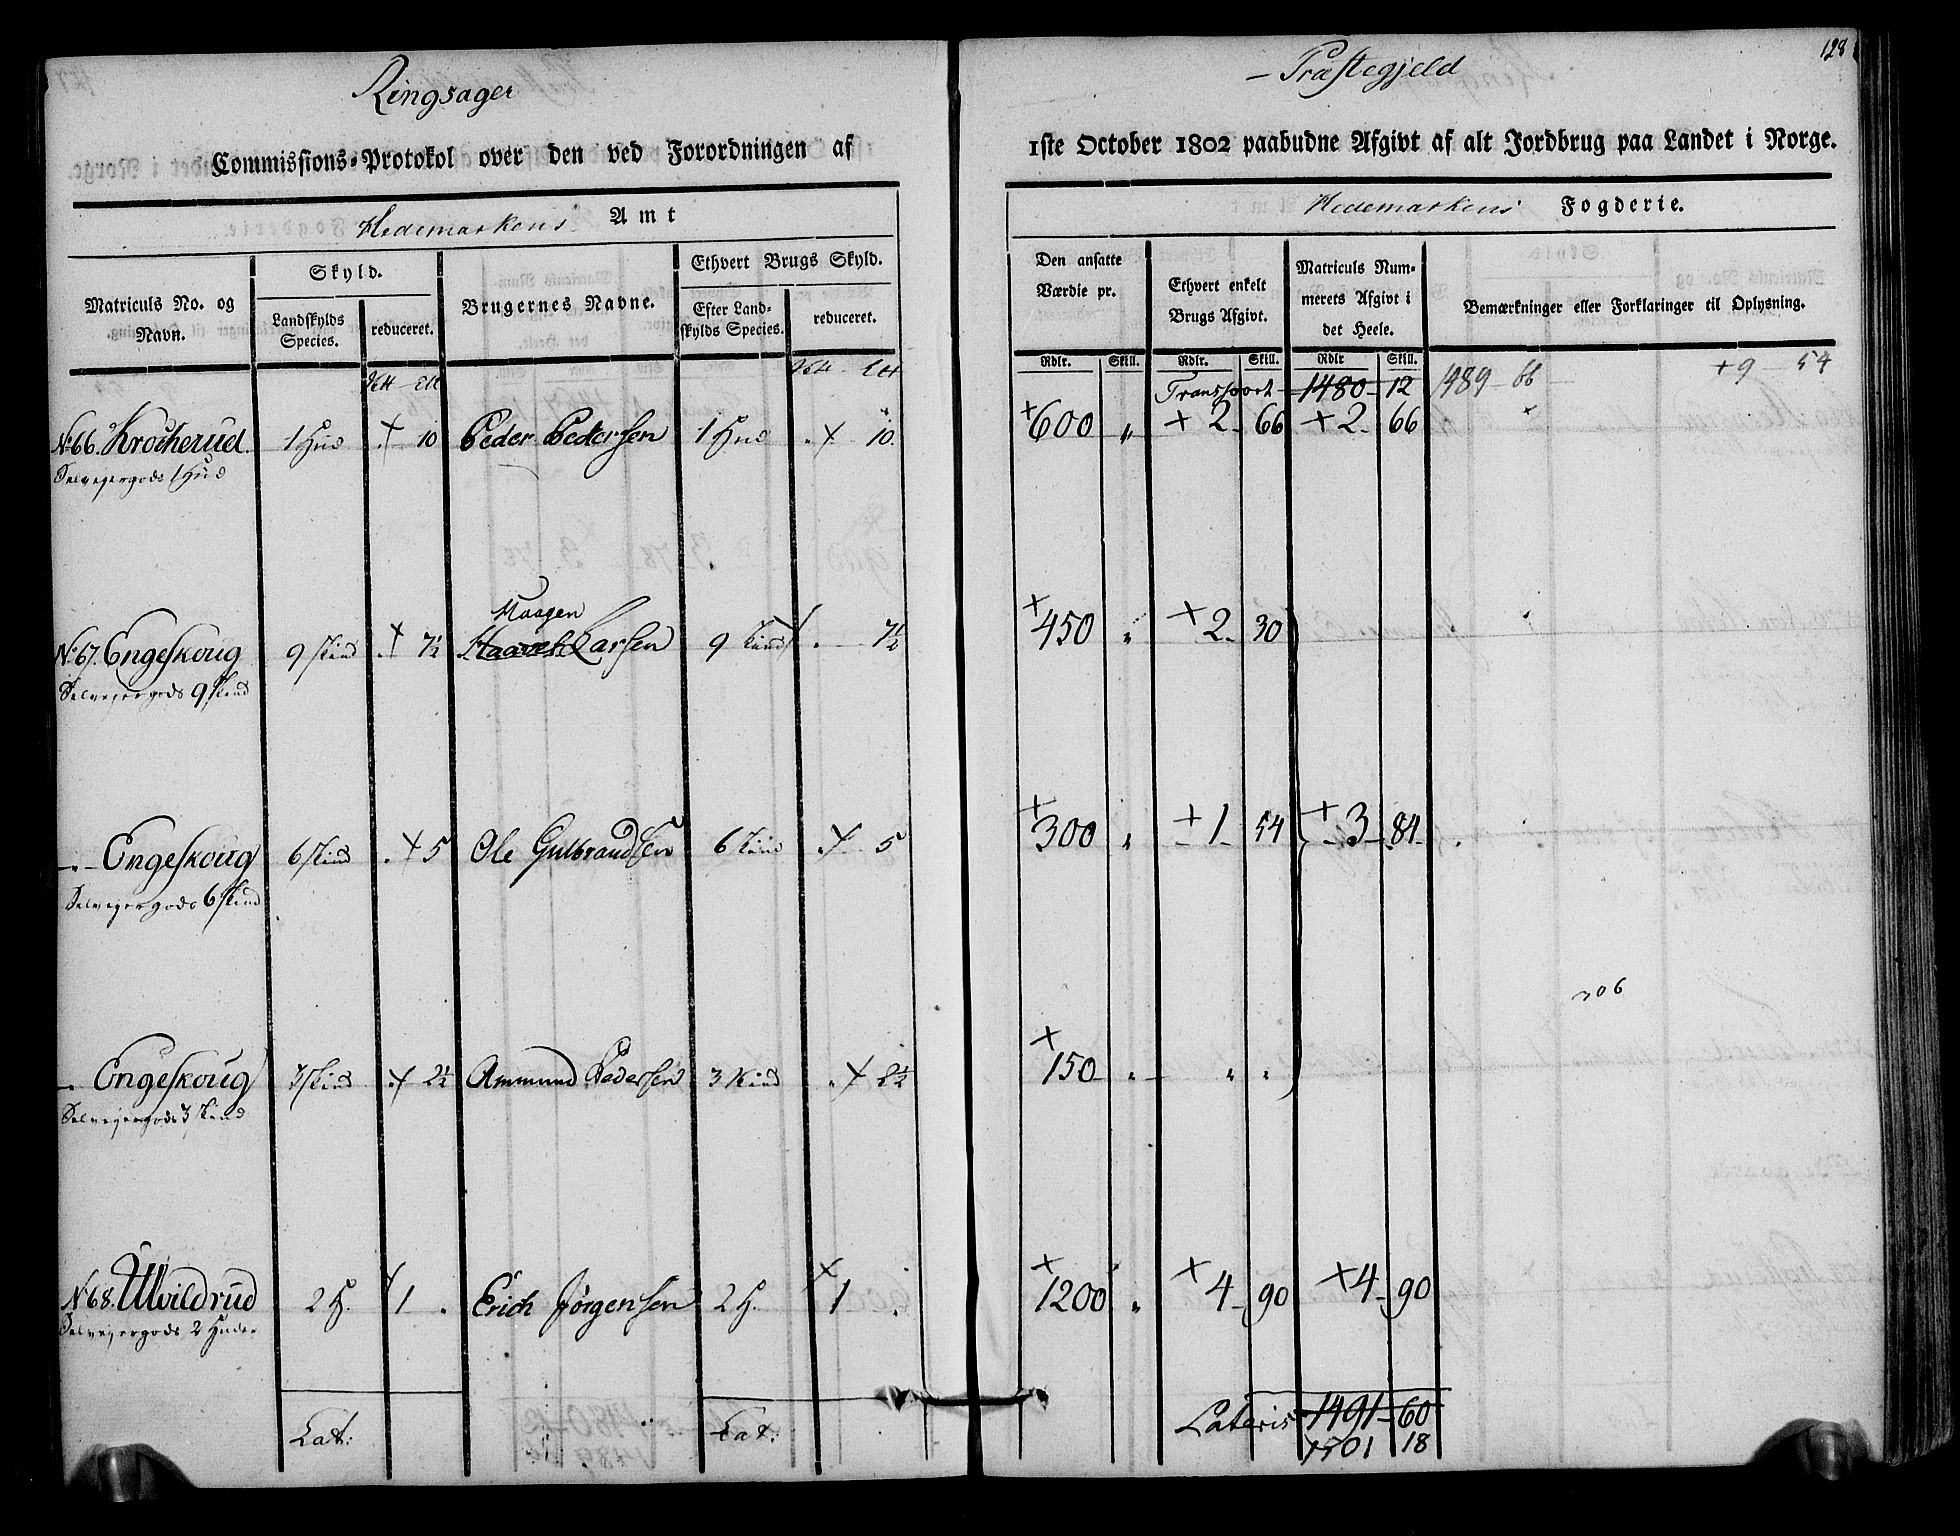 Ringsager
Commissions-Protokol over den ved Forordningen af
Hedemarkens Amt
Matriculs No. og Navn.
Skyld.
Landskylds Species.
reduceret.
Brugernes Navne.
Ethvert Brugs Skyld.
Efter Landskylds Species.
reduceret.
No 66. Krocherud. 1 Hud + 10 Peder Pedersen 1 Hud + 10.
Selveyergods 1 Hud
Haagen
No 67. Engeskoug 9 skind + 7½ Haavel Larsen 9 skind . 7½
Selveyergods 9 skind
Engeskoug 6 skind + 5 Ole Gulbrandsen 6 skind + 5
Selveyergods 6 skind
Engeskoug 3 skind + 2½ Ammund Pedersen 3 skind + 2½
Selveyergods 3 skind
No 68. Ulvildrud 2 H. 1 . Erich Jørgensen 2 H. + 1 .
Selveyergods 2 Huder
Lat: Lat:
128
- Præstegjeld
1ste October 1802 paabudne Afgivt af alt Jordbrug paa Landet i Norge.
Hedemarkens Fogderie.
Den ansatte Værdie pr.
Ethvert enkelt Brugs Afgivt.
Matriculs Nummerets Afgivt i det Heele.
Bemærkninger eller Forklaringer til Oplysning.
Rdlr. Skill. Rdlr. Skill. Rdlr Skill.
Transport - 1480 - 12 1489 - 66 + 9 - 54
+ 600 „ + 2 - 66 + 2 - 66
+ 450 „ + 2 - 30
+ 300 „ + 1 - 54 + 3 - 84
306
+ 150 „ „ „
+ 1200 „ + 4 - 90 + 4 - 90
Lateris 1491 - 60
1501 18